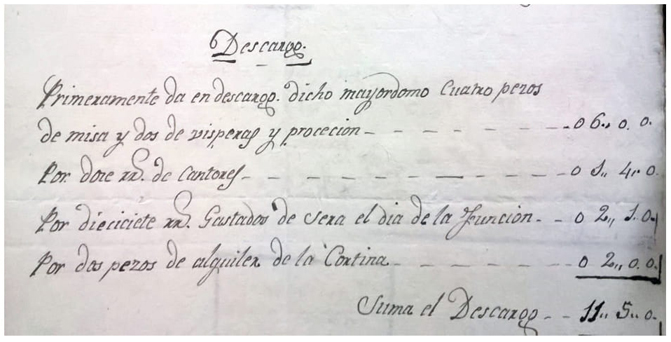 Descargo.
Primeramente da en descargo. dicho mayordomo Cuatro pezos
de misa y dos de visperas y procecion - - - - 0 6,, 0. 0.
Por. doce rr.s de Cantores - - - - 0 1,, 4,, 0.
Por dieciciete rr.s Gastados de sera el dia de la Funcion - - 0 2,, 1. 0.
Por dos pezos de alquiler de la Cortina - - - - 0 2,, 0. 0.
Suma el Descargo - - 11,, 5,, 0.